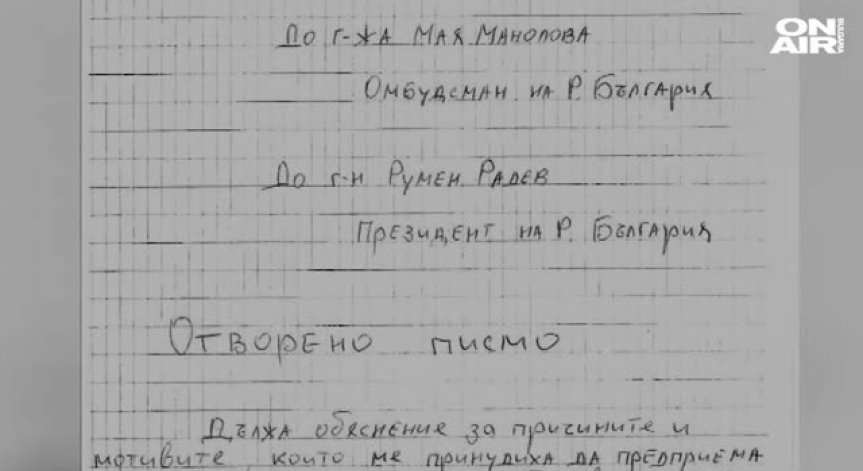 До г-жа Мая Манолова
ON AIR BULGARIA
Омбудсман на Р. България
До г-н Румен Радев
Президент на Р. България
Отворено писмо
Дължа обяснение за причините и
мотивите, които ме принудиха да предприема